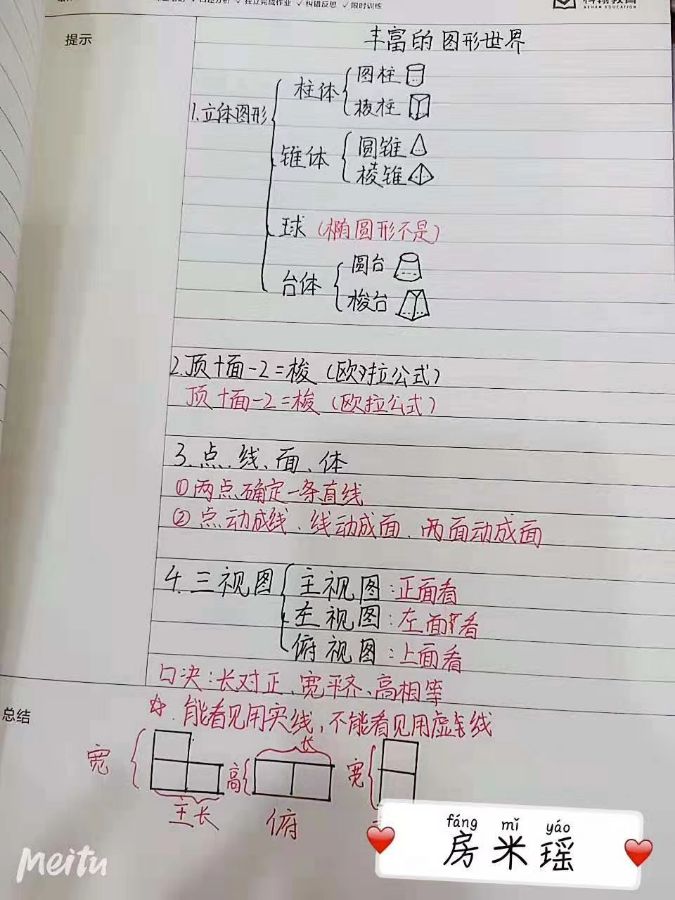 独立完成作业 ✓ 纠错反思 ✓ 限时训练
提示
丰富的图形世界
1.立体图形
柱体
圆柱
棱柱
锥体
圆锥
棱锥
球（椭圆形不是）
台体
圆台
梭台
2.顶+面-2=梭（欧对拉公式）
顶+面-2=梭（欧拉公式）
3.点、线、面、体
①两点确定一条直线
②点动成线、线动成面、两面动成面
4.三视图
主视图：正面看
左视图：左面看
俯视图：上面看
口决：长对正、宽平齐、高相等
☆.能看见用实线，不能看见用虚线
总结
宽
主 长
高
长
俯
宽
fáng mǐ yáo
房米瑶
Meitu